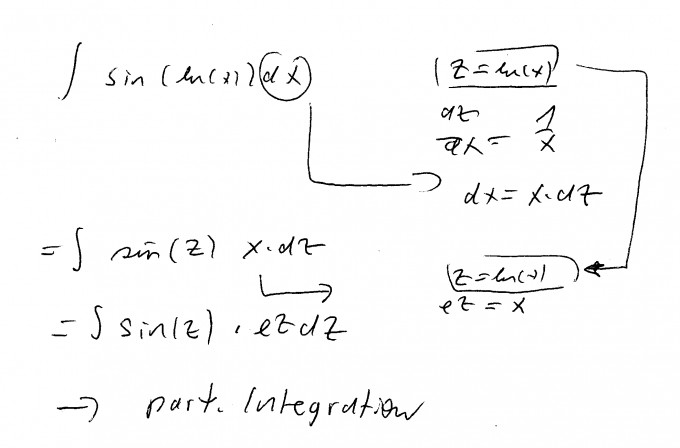 ∫ sin(ln(x)) dx
z = ln(x)
dz/dx = 1/x
dx = x·dz
= ∫ sin(z) x·dz
z = ln(x)
e^z = x
= ∫ sin(z) · e^z dz
→ part. Integration